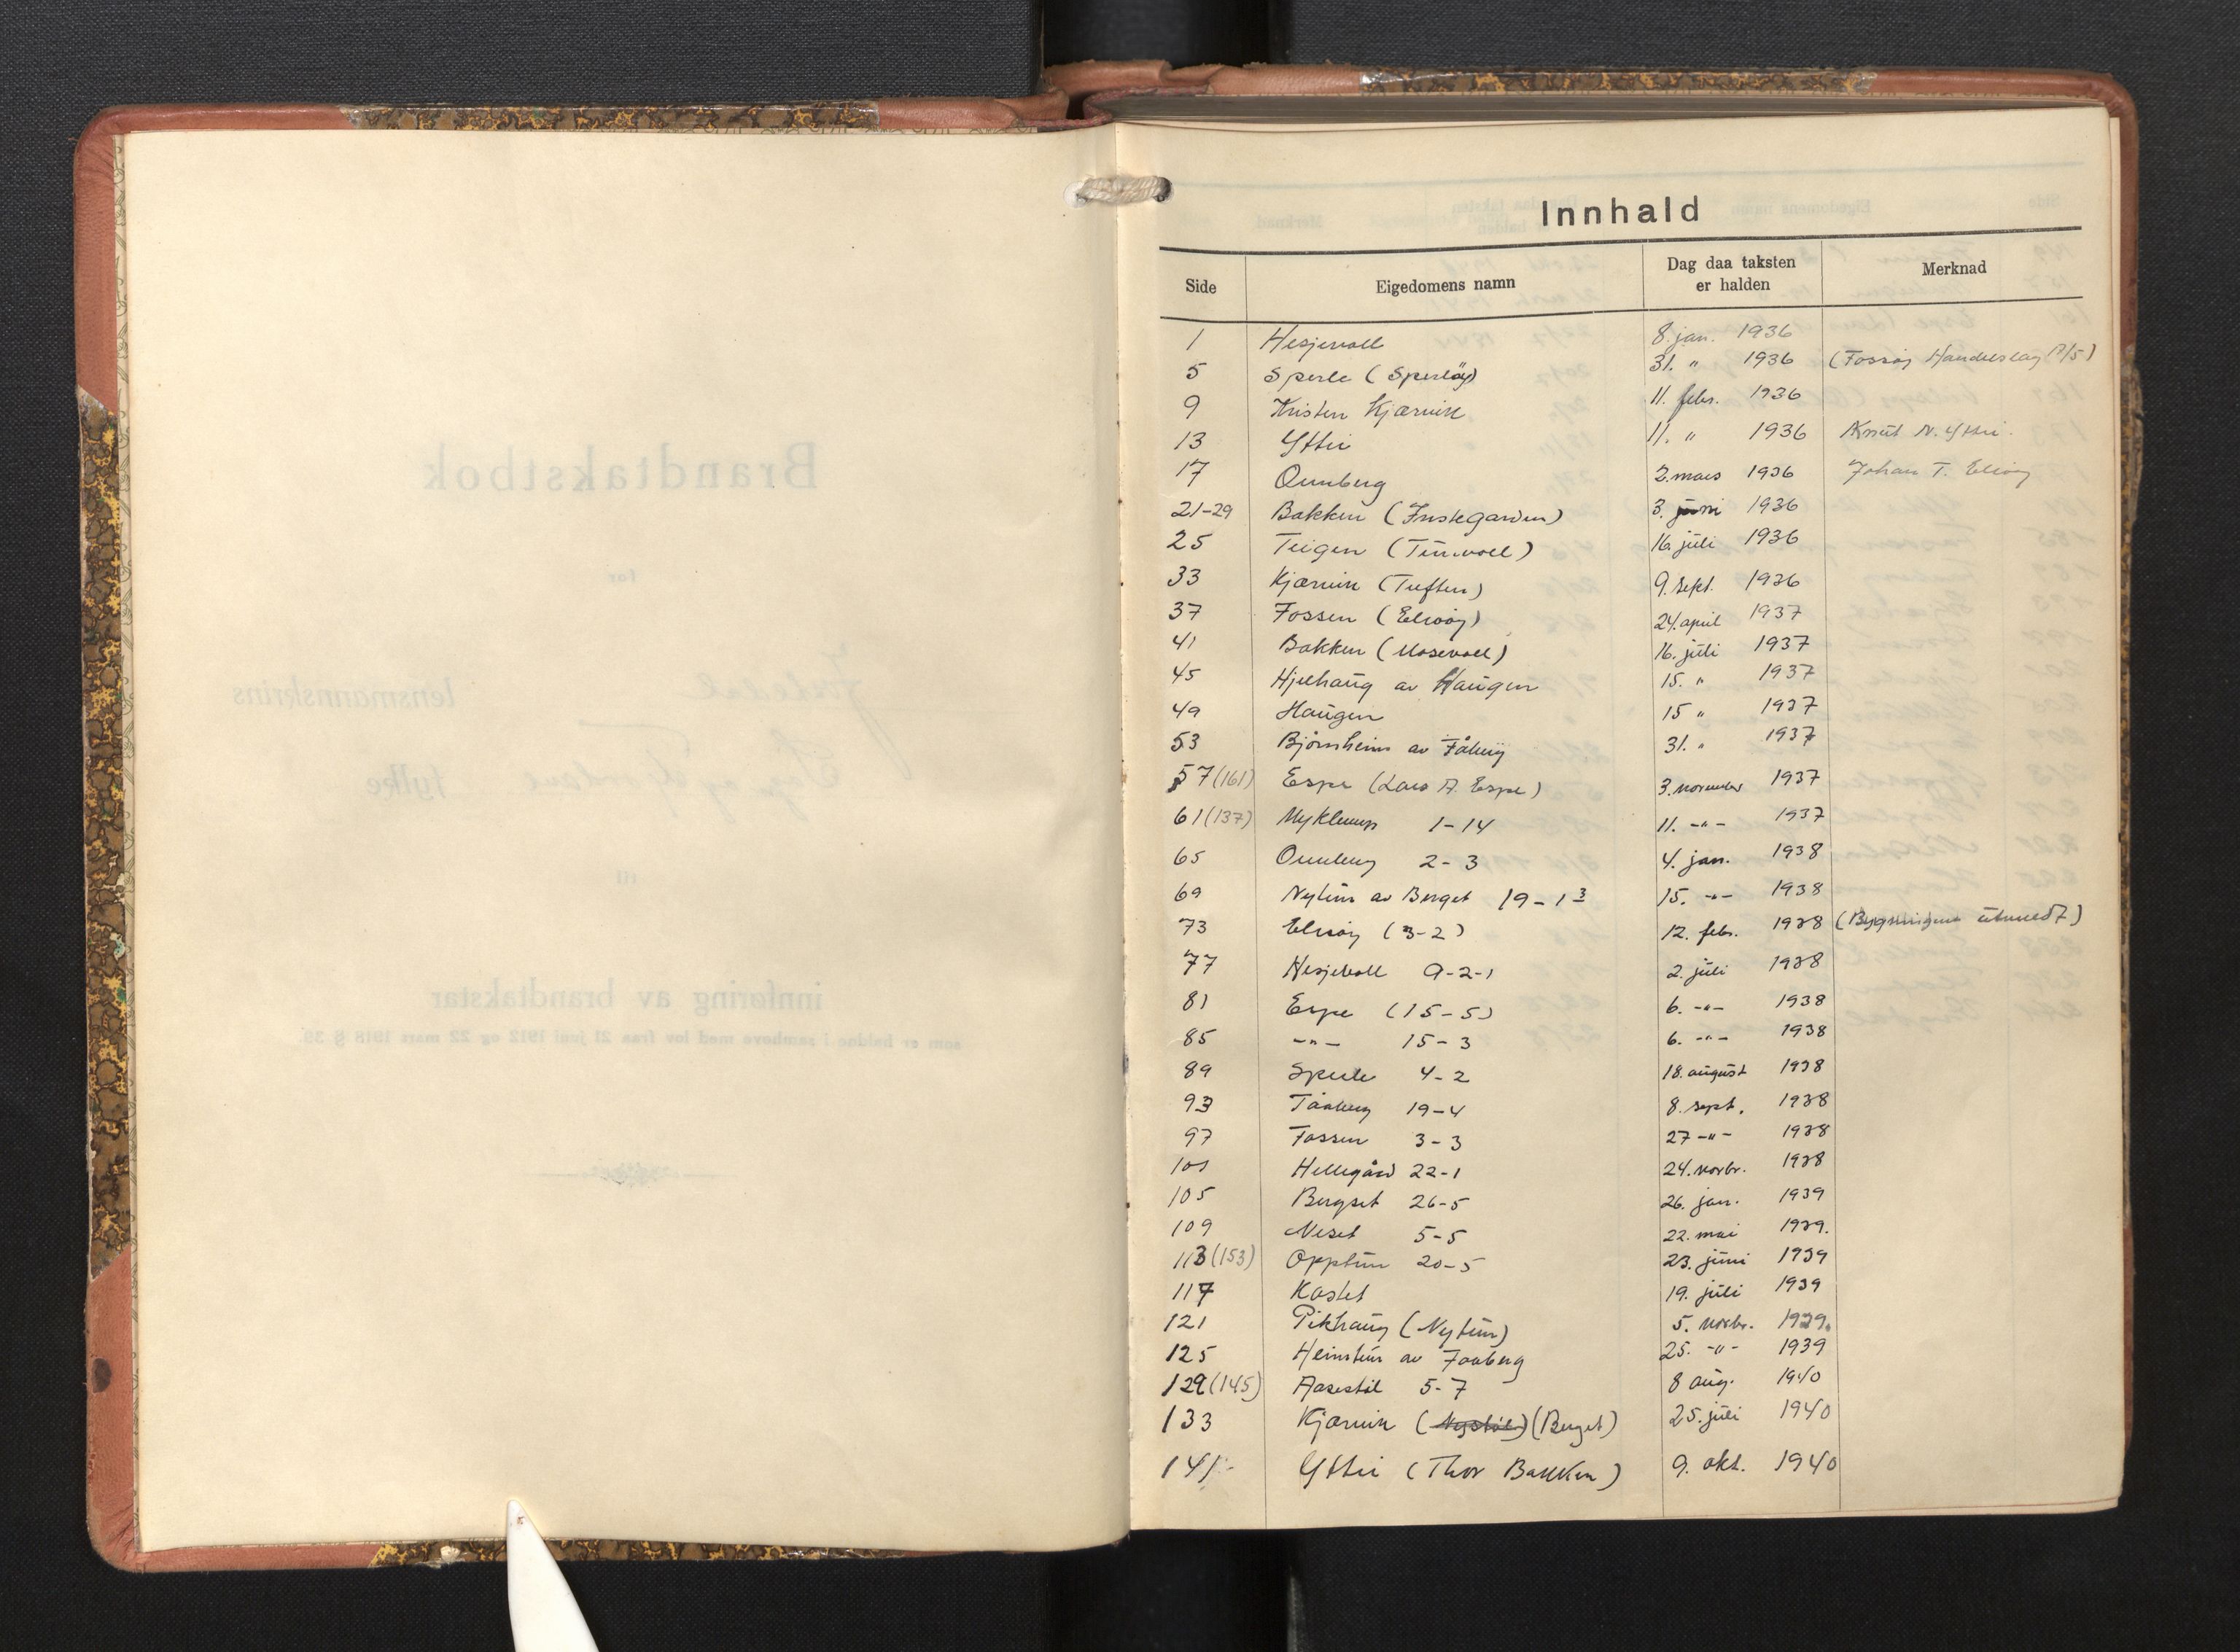 Brandtakstbok
for
Jostedal lensmannskrins
Sogn og Fjordane fylke
til
innføring av brandtakstar
som er haldne i samhøve med lov fraa 21 juni 1912 og 22 mars 1918 § 39
Innhald
Side Eigedomens namn Dag daa taksten er halden Merknad
1 Hesjevoll 8. jan. 1936
5 Sperle (Sperløy) 31. " 1936 (Fossøy Handelslag A/S)
9 Kristen Kjærvik 11. febr. 1936
13 Yttri 11. " 1936 Knut N. Yttri.
17 Ormberg 2. mars 1936 Johan T. Elvøy
21-29 Bakken (Fristegarden) 3. juni 1936
25 Teigen (Tunvoll) 16. juli 1936
33 Kjærvik (Tuften) 9. sept. 1936
37 Fossen (Elvøy) 24. april 1937
41 Bakken (Mosevoll) 16. juli 1937
45 Hjelhaug av Haugen 15. " 1937
49 Haugen 15 " 1937
53 Bjørnheim av Fåberg 31. " 1937
57 (161) Espe (Lars A. Espe) 3. november 1937
61 (137) Myklemyr 1-14 11. -"- 1937
65 Ormberg 2-3 4. jan. 1938
69 Nytun av Berget 19-13 15. -"- 1938
73 Elvøy (3-2) 12. febr. 1938 (Bygningene utmeldt)
77 Hesjevoll 9-2-1 2. juli 1938
81 Espe (15-5) 6. -"- 1938
85 -"- 15-3 6. -"- 1938
89 Sperle 4-2 18. august 1938
93 Fåaberg 19-4 8. sept. 1938
97 Fossen 3-3 27 -"- 1938
101 Hellegård 22-1 24. novbr. 1938
105 Bergset 26-5 26. jan. 1939
109 Neset 5-5 22. mai 1939.
113 (153) Opptun 20-5 23. juni 1939
117 Kastet 19. juli 1939
121 Pikhaug (Nytun) 5. novbr. 1939.
125 Heimtun av Faaberg 25. -"- 1939
129 (145) Aasestøl 5-7 8 aug. 1940
133 Kjærvik (Nystøl) (Berget) 25. juli 1940
141 Yttri (Thor Bakken) 9. okt. 1940